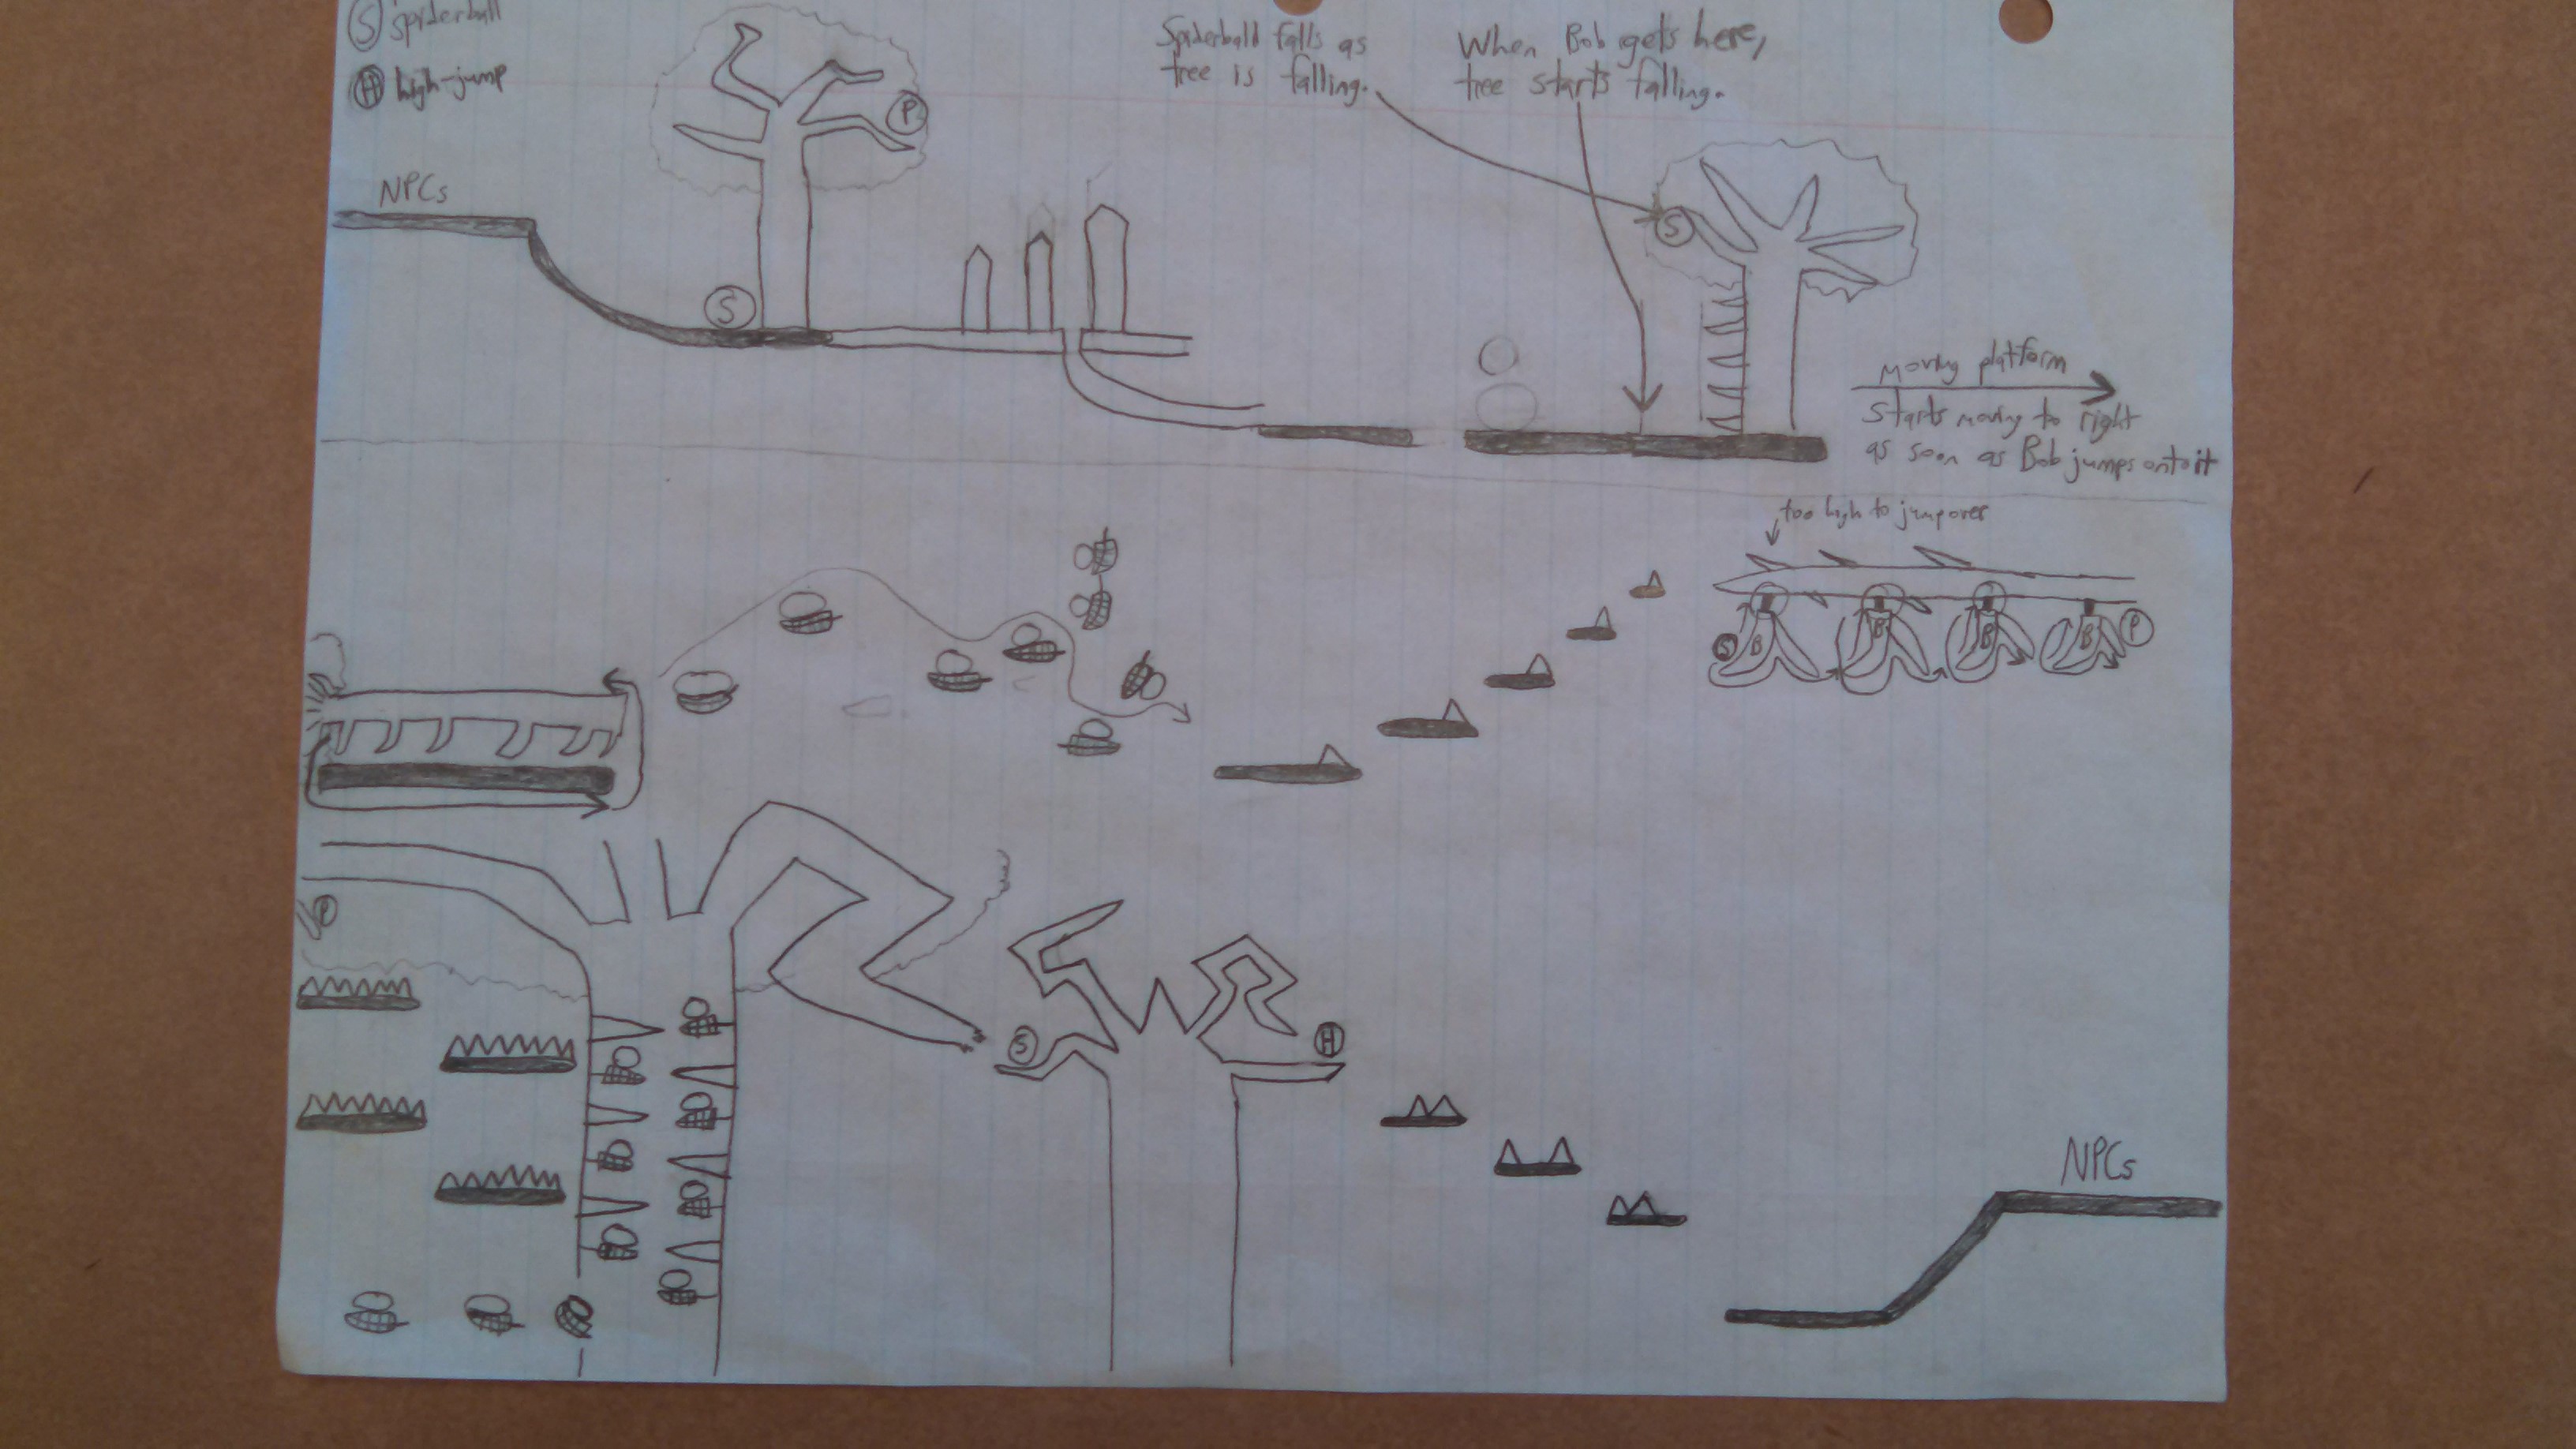 S spiderball
H high-jump
Spiderball falls as
tree is falling.
When Bob gets here,
tree starts falling.
P
NPCs
S
S
moving platform
Starts moving to right
as soon as Bob jumps onto it
too high to jump over
S B B B B P
P
S
H
NPCs